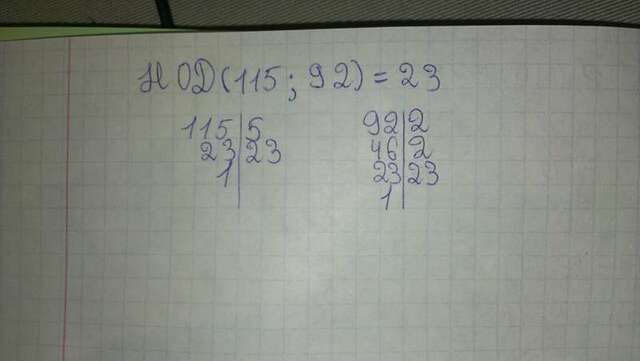 НОД(115; 92) = 23
115|5
23|23
1|
92|2
46|2
23|23
1|